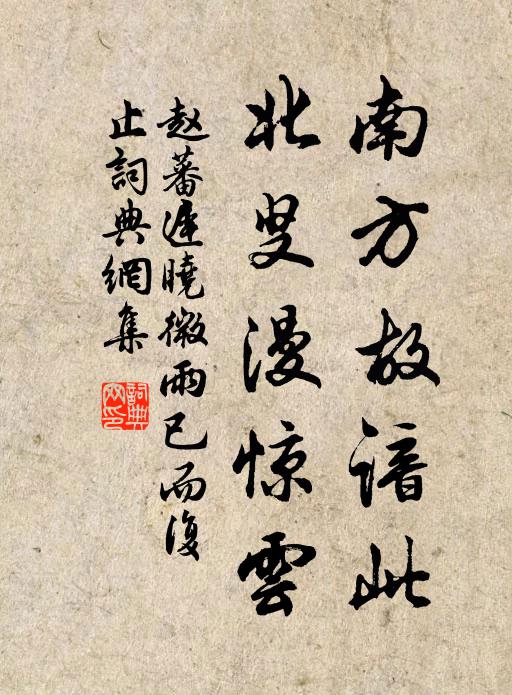 南方故谙此
北叟漫惊雲
赵蕃遲曉微雨已而復
止詞典網集
詞典
网印